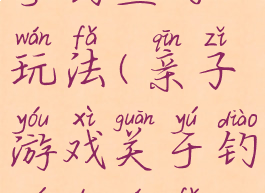 wán fǎ qīn zǐ
玩法(亲子
yóu xì guān yú diào
游戏关于钓